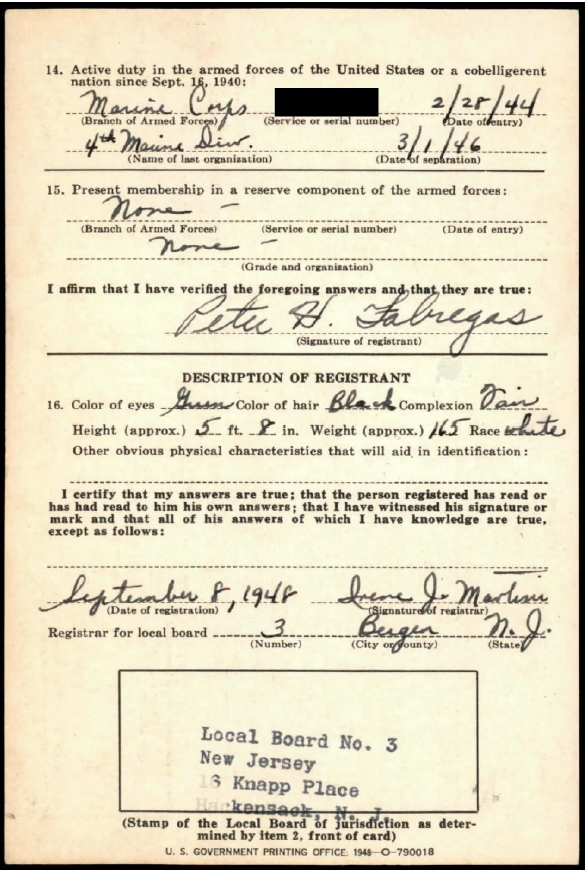 14. Active duty in the armed forces of the United States or a cobelligerent
nation since Sept. 16, 1940:
Marine Corps 2/28/44
(Branch of Armed Forces) (Service or serial number) (Date of entry)
4th Marine Div. 3/1/46
(Name of last organization) (Date of separation)
15. Present membership in a reserve component of the armed forces:
None –
(Branch of Armed Forces) (Service or serial number) (Date of entry)
None –
(Grade and organization)
I affirm that I have verified the foregoing answers and that they are true:
Peter H. Fabregas
(Signature of registrant)
DESCRIPTION OF REGISTRANT
16. Color of eyes Green Color of hair Black Complexion Fair
Height (approx.) 5 ft. 8 in. Weight (approx.) 165 Race White
Other obvious physical characteristics that will aid in identification:
I certify that my answers are true; that the person registered has read or
has had read to him his own answers; that I have witnessed his signature or
mark and that all of his answers of which I have knowledge are true,
except as follows:
September 8, 1948 Irene J.
(Date of registration) (Signature of registrar)
Registrar for local board 3 Bergen N. J.
(Number) (City or county) (State)
Local Board No. 3
New Jersey
16 Knapp Place
Hackensack, N. J.
(Stamp of the Local Board of jurisdiction as deter-
mined by item 2, front of card)
U. S. GOVERNMENT PRINTING OFFICE: 1948—O-790018